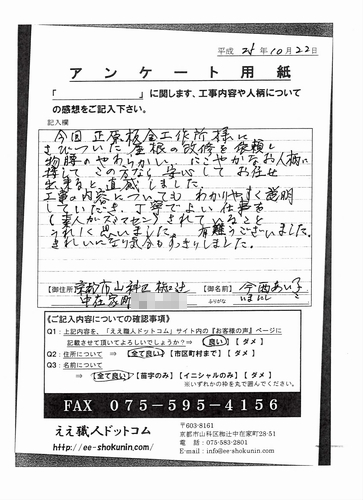 平成 25年10月22日
アンケート用紙
「　　　　　　　」に関します、工事内容や人柄について
の感想をご記入下さい。
記入欄
今回 正原板金工作所様に
さびついた屋根の改修を依頼し
物腰のやわらかい、にこやかなお人柄に
接して この方なら 安心して お任せ
出来ると直感しました。
工事の内容についても わかりやすく説明
していただき、丁寧でよい仕事を
(素人がスミマセン) されていること
うれしく思いました。有難うございました。
きれいになり気分もすっきりしました。
御住所 京都市山科区椥辻
中在家町
御名前 今西あい子
ふりがな いまにし
《ご記入内容についての確認事項》
Q1：上記内容を、「ええ職人ドットコム」サイト内の『お客様の声』ページに
記載させて頂いてよろしいでしょうか？⇒ 【 良い 】 【 ダメ 】
Q2：住所について ⇒ 【全て良い】【市区町村まで】【 ダメ 】
Q3：名前について
⇒ 【全て良い】【苗字のみ】【イニシャルのみ】【 ダメ 】
※いずれかの枠を丸で囲んでください。
FAX 075-595-4156
ええ職人ドットコム
http://ee-shokunin.com/
〒603-8161
京都市山科区椥辻中在家町28-51
電 話：075-583-2801
E-mail：info@ee-shokunin.com